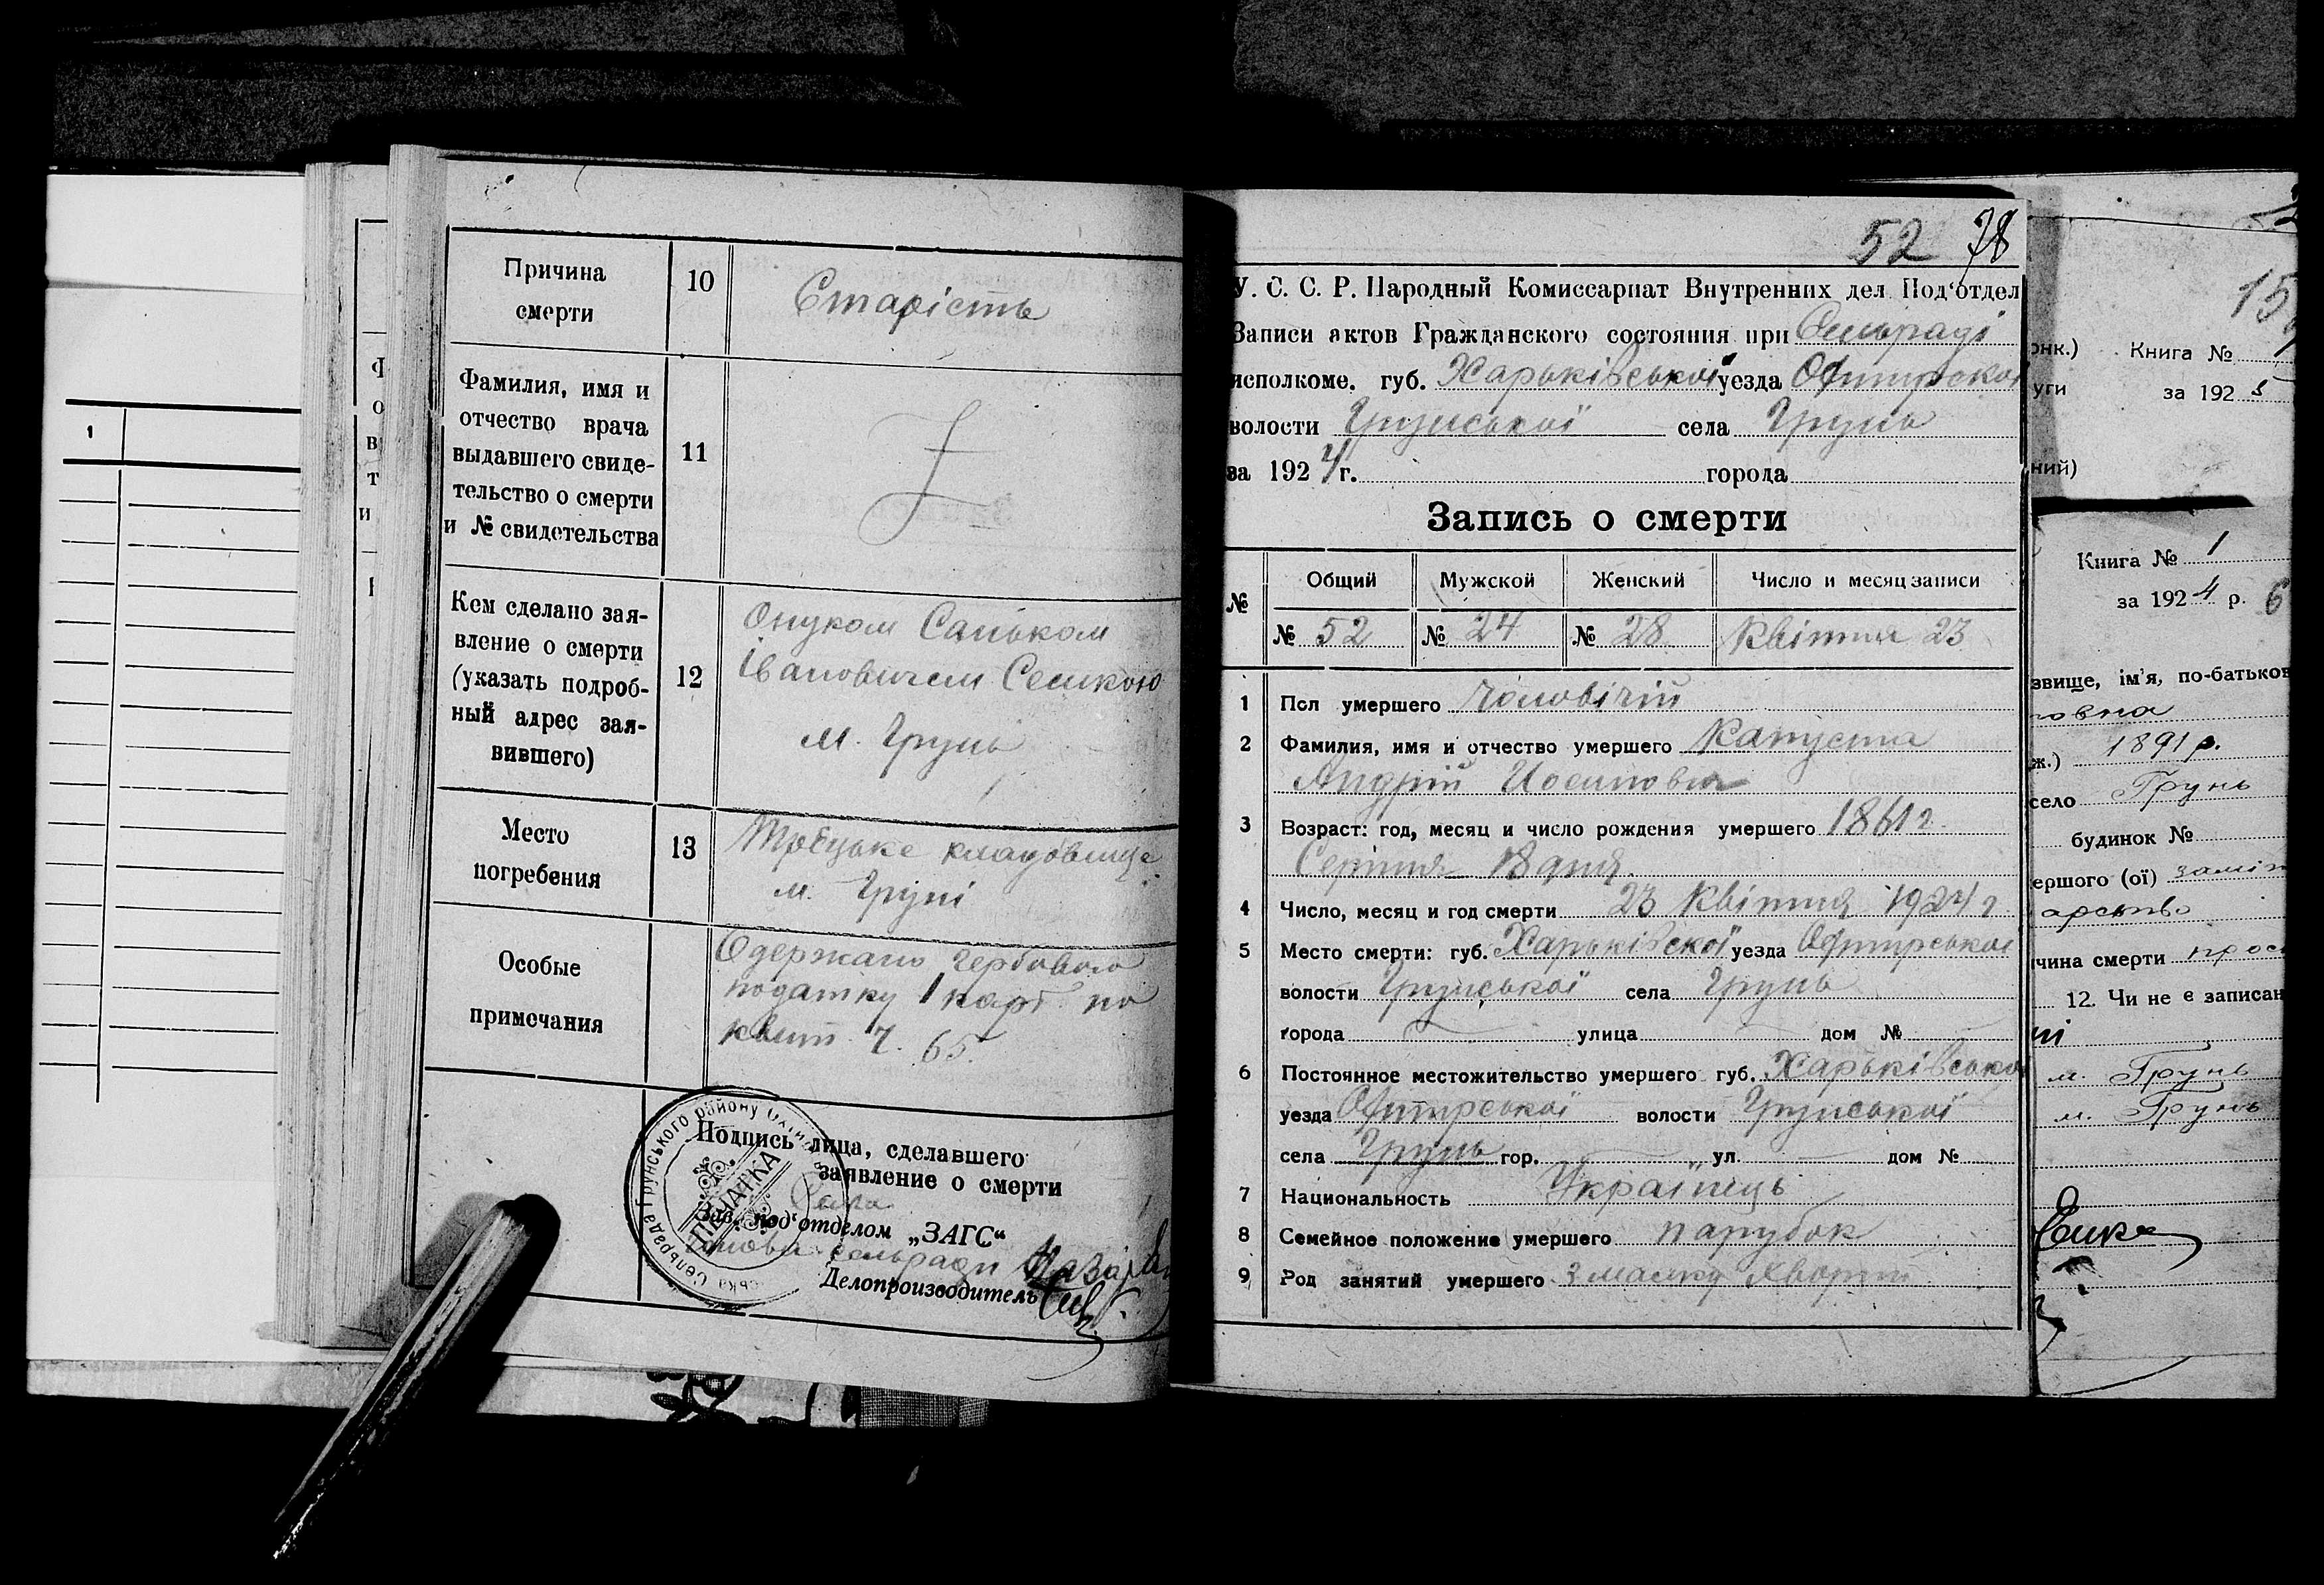 1
Ф
о
в
т
и
Причина
смерти
10
Старість
Фамилия, имя и
отчество врача
выдавшего свиде-
тельство о смерти
и № свидетельства
11
Кем сделано зая-
вление о смерти
(указать подроб-
ный адрес зая-
вившего)
12
Онуком Саньком
Івановичем Сенкою
м. Грунь
Место
погребения
13
Троєцьке кладовище
м. Груні
Особые
примечания
Одержано гербового
податку 1 карб по
квит. Ч. 65.
Подпись лица, сделавшего
заявление о смерти
Зав. под'отделом „ЗАГС“
Голова сельради
Делопроизводитель
ПЕЧАТКА
Сельрада Грунського району
52 78
У. С. С. Р. Народный Комиссариат Внутренних дел Под'отдел
Записи актов Гражданского состояния при Сельраді
исполкоме. губ. Харьківської уезда Охтирской
волости Грунської села Грунь
за 1924 г. города
Запись о смерти
№ Общий Мужской Женский Число и месяц записи
№ 52 № 24 № 28 Квітня 23
1 Пол умершего чоловічий
2 Фамилия, имя и отчество умершего Капуста
Андрій Иосипович
3 Возраст: год, месяц и число рождения умершего 1861 г.
Серпня 18 дня.
4 Число, месяц и год смерти 23 Квітня 1924 г.
5 Место смерти: губ. Харьківскої уезда Охтирської
волости Грунської села Грунь
города улица дом №
6 Постоянное местожительство умершего губ. Харьківсько
уезда Охтирської волости Грунської
села Грунь гор. ул. дом №
7 Национальность Українець
8 Семейное положение умершего парубок
9 Род занятий умершего
15
онк.) Книга №
уги за 1925
ний)
Книга № 1
за 1924 р. 6
звище, ім'я, по-батьков
овна
ж.) 1891 р.
село Грунь
будинок №
ершого (ої) заміж
арство
чина смерти
12. Чи не є записан
м. Грунь
м. Грунь